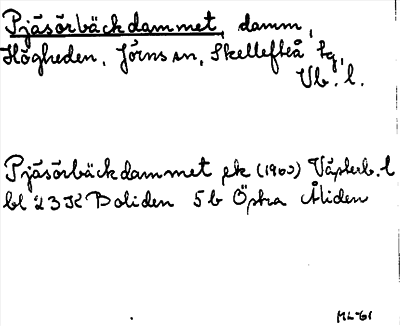 Pjäsörbäckdammet, damm,
Högheden, Jörns sn, Skellefteå tg,
Vb. l.
Pjäsörbäckdammet ek (1960) Västerb. l
bl 23K Boliden 5b Östra Åliden
ML-61